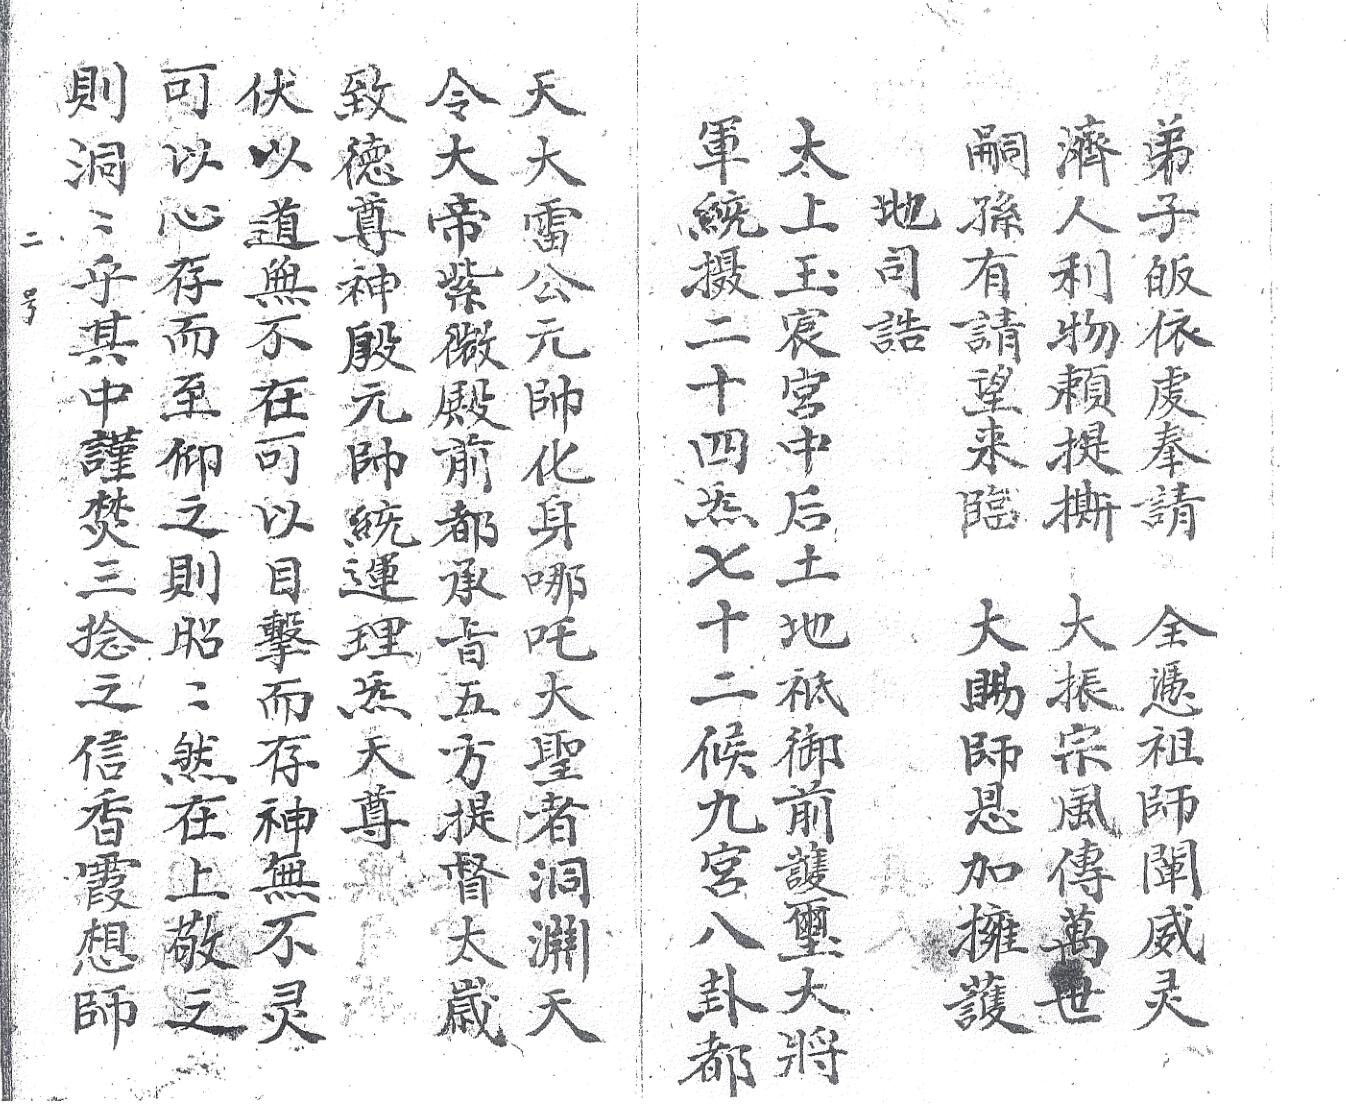 弟子皈依處奉請　全憑祖師闡威灵
濟人利物頼提撕　大振宗風傳萬世
嗣孫有請望来臨　大賜師恩加擁護
地司誥
太上玉宸宮中后土地祇御前護璽大將
軍統摄二十四炁七十二候九宮八卦都
天大雷公元帥化身哪吒大聖者洞渊天
令大帝紫微殿前都承旨五方提督太歲
致德尊神殷元帥統運理炁天尊
伏以道無不在可以目擊而存神無不灵
可以心存而至仰之則昭〻然在上敬之
則洞〻乎其中謹焚三捻之信香霞想師
二号